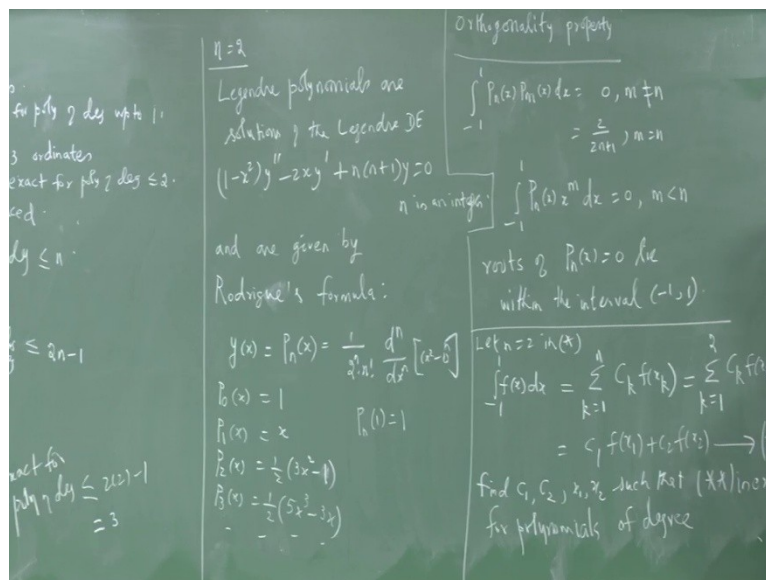 fn poly of deg upto 1.
3 ordinates
exact for poly of deg ≤ 2.
deg ≤ n.
≤ 2n-1
exact for
poly of deg ≤ 2(2)-1
= 3
n = 2
Legendre polynomials are
solutions of the Legendre DE
(1-x²)y'' - 2xy' + n(n+1)y = 0
n is an integer.
and are given by
Rodrigue's formula:
y(x) = Pₙ(x) = 1/(2ⁿ n!) dⁿ/dxⁿ [(x²-1)ⁿ]
P₀(x) = 1
Pₙ(1) = 1
P₁(x) = x
P₂(x) = 1/2 (3x²-1)
P₃(x) = 1/2 (5x³-3x)
- - - -
Orthogonality property
∫₋₁¹ Pₙ(x) Pₘ(x) dx = 0, m ≠ n
= 2/(2n+1), m = n
∫₋₁¹ Pₙ(x) xᵐ dx = 0, m < n
roots of Pₙ(x) = 0 lie
within the interval (-1, 1).
Let n = 2 in (*)
∫₋₁¹ f(x) dx = Σₖ₌₁ⁿ Cₖ f(xₖ) = Σₖ₌₁² Cₖ f(x
= C₁ f(x₁) + C₂ f(x₂) → (
find C₁, C₂, x₁, x₂ such that (**) is ex
for polynomials of degree